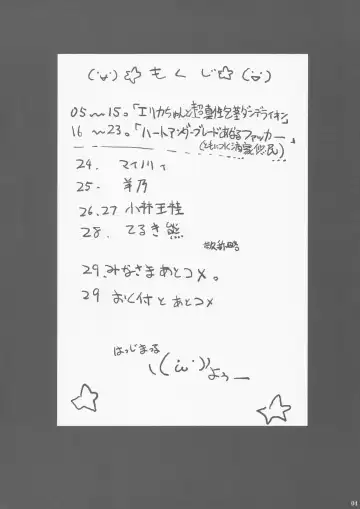 (・ω・)☆もくじ☆(・ω・)
05〜15。「エリカちゃんと超真性包茎ダンデライオン」
16〜23。「ハートアンダーブレードあなるファッカー」
24. マイノリィ
25.
26.27 小林王桂
28. てるき熊
敬称略
29.みなさまあとコメ。
29 おく付とあとコメ
はっじまっる
\(・ω・)/
よぅー
01